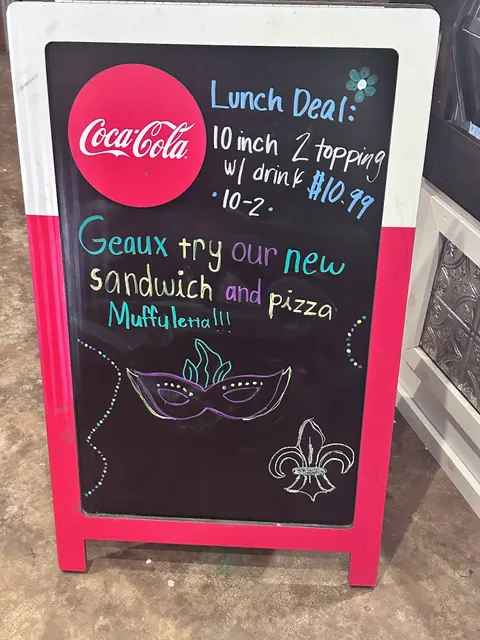 Coca-Cola
Lunch Deal:
10 inch 2 topping
w/ drink $10.99
· 10-2 ·
Geaux try our new
sandwich and pizza
Muffyletta!!!